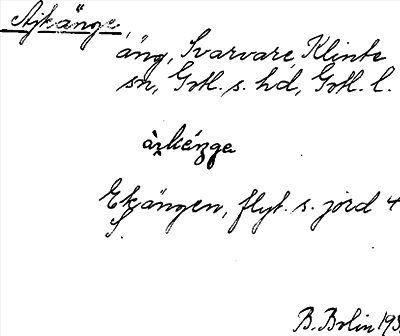 Ajkänge,
äng, Svarvare, Klinte
sn, Gotl. s. hd, Gotl. l.
Ekängen, flyt. s. jord 4
S.
B. Bolin 193